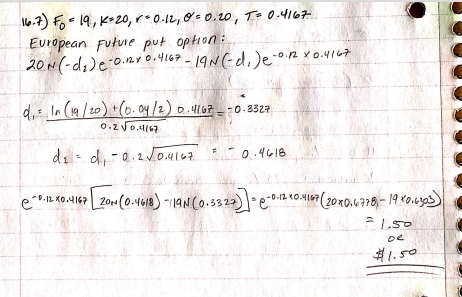 16.7) F₀ = 19, K=20, r = 0.12, σ = 0.20, T= 0.4167
European Future put option:
20N(-d₂)e^-0.12x0.4167 - 19N(-d₁)e^-0.12x0.4167
d₁ = ln(19/20)+(0.04/2)0.4167 / 0.2√0.4167 = -0.3327
d₂ = d₁ - 0.2√0.4167 = -0.4618
e^-0.12x0.4167[20N(0.4618)-19N(0.3327)] = e^-0.12x0.4167(20x0.6778-19x0.6303)
= 1.50
or
$1.50